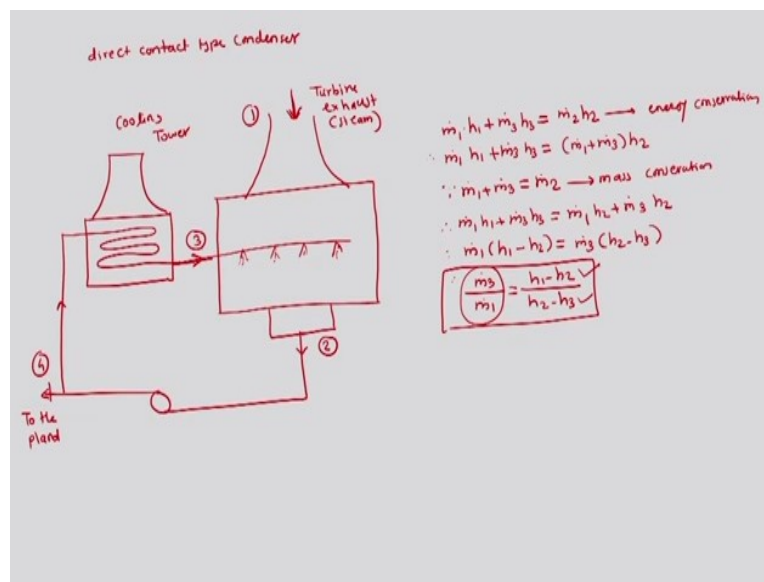 direct contact type condenser
Cooling
Tower
①
Turbine
exhaust
(steam)
③
②
④
To the
pland
ṁ₁ h₁ + ṁ₃ h₃ = ṁ₂ h₂ → energy conservation
∴ ṁ₁ h₁ + ṁ₃ h₃ = (ṁ₁ + ṁ₃) h₂
∵ ṁ₁ + ṁ₃ = ṁ₂ → mass conseration
∴ ṁ₁ h₁ + ṁ₃ h₃ = ṁ₁ h₂ + ṁ₃ h₂
∴ ṁ₁ (h₁ - h₂) = ṁ₃ (h₂ - h₃)
∴ ṁ₃/ṁ₁ = h₁ - h₂ ✓/h₂ - h₃ ✓